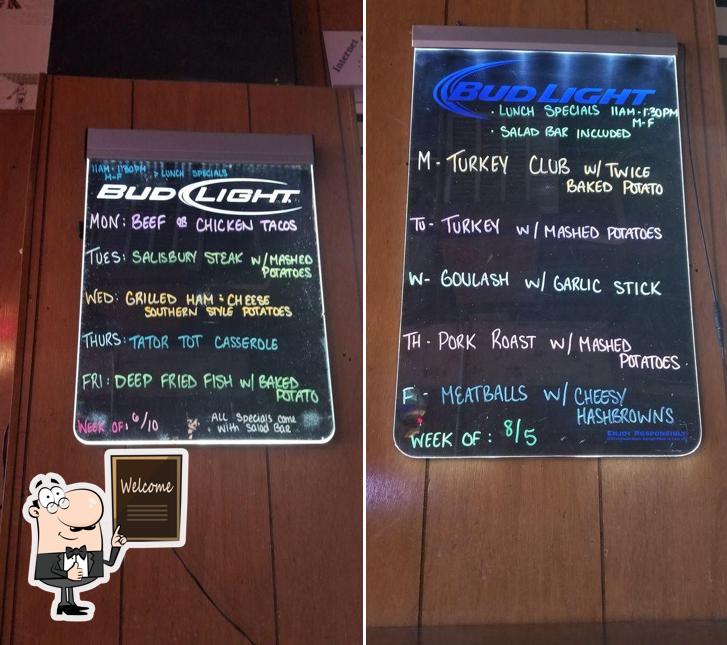 Internet
11AM-1:30PM > LUNCH SPECIALS
M-F
BUD LIGHT
MON: BEEF OR CHICKEN TACOS
TUES: SALISBURY STEAK W/ MASHED
POTATOES
WED: GRILLED HAM & CHEESE
SOUTHERN STYLE POTATOES
THURS: TATOR TOT CASSEROLE
FRI: DEEP FRIED FISH W/ BAKED
POTATO
WEEK OF: 6/10
All Specials come
with Salad Bar
Welcome
BUD LIGHT
· LUNCH SPECIALS 11AM-1:30PM
M-F
· SALAD BAR INCLUDED
M - TURKEY CLUB W/ TWICE
BAKED POTATO
TU - TURKEY W/ MASHED POTATOES
W - GOULASH W/ GARLIC STICK
TH - PORK ROAST W/ MASHED
POTATOES
F - MEATBALLS W/ CHEESY
HASHBROWNS
WEEK OF: 8/5
ENJOY RESPONSIBLY